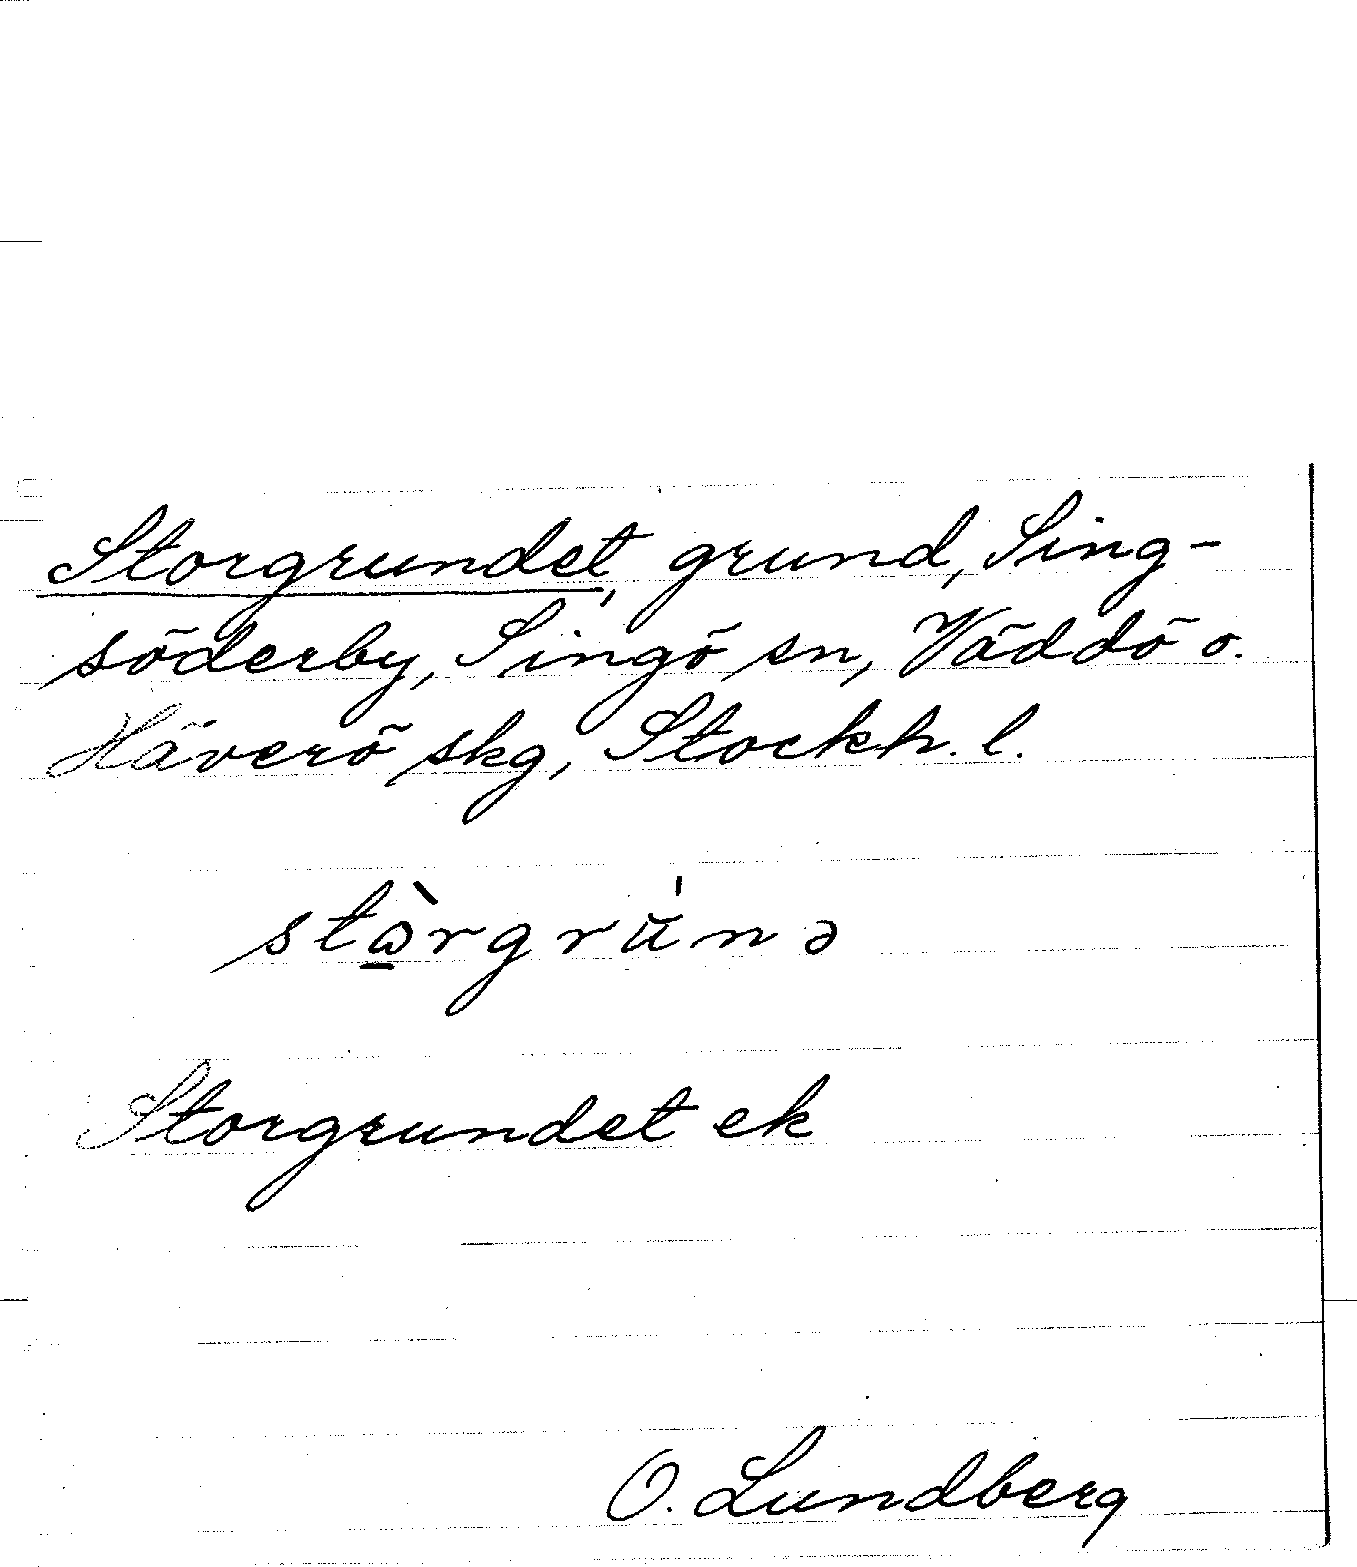 Storgrundet, grund, Sing-
söderby, Singö sn, Väddö o.
Häverö skg, Stockh. l.
stɷ̀rgrŭ́nə
Storgrundet ek
O. Lundberg